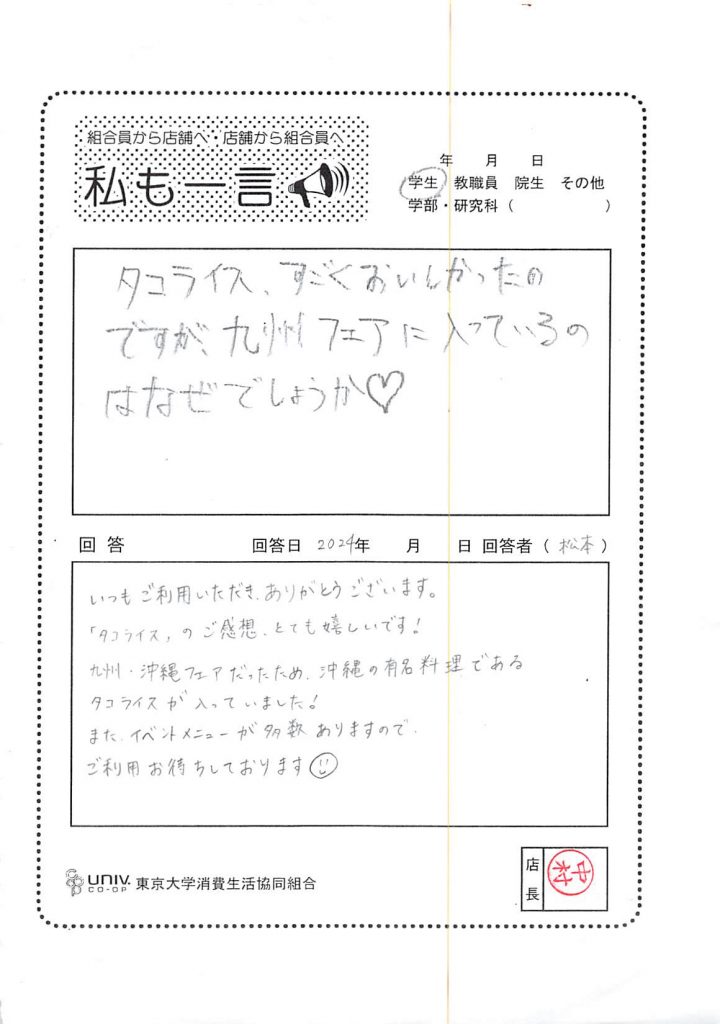 組合員から店舗へ・店舗から組合員へ
私も一言
年 月 日
学生 教職員 院生 その他
学部・研究科( )
タコライス、すごくおいしかったの
ですが、九州フェアに入っているの
はなぜでしょうか♡
回答 回答日 2024年 月 日 回答者(松本)
いつもご利用いただき、ありがとうございます。
「タコライス」のご感想、とても嬉しいです!
九州・沖縄フェアだったため、沖縄の有名料理である
タコライスが入っていました!
また、イベントメニューが多数ありますので、
ご利用お待ちしております
UNIV.
CO-OP
東京大学消費生活協同組合
店長
中村